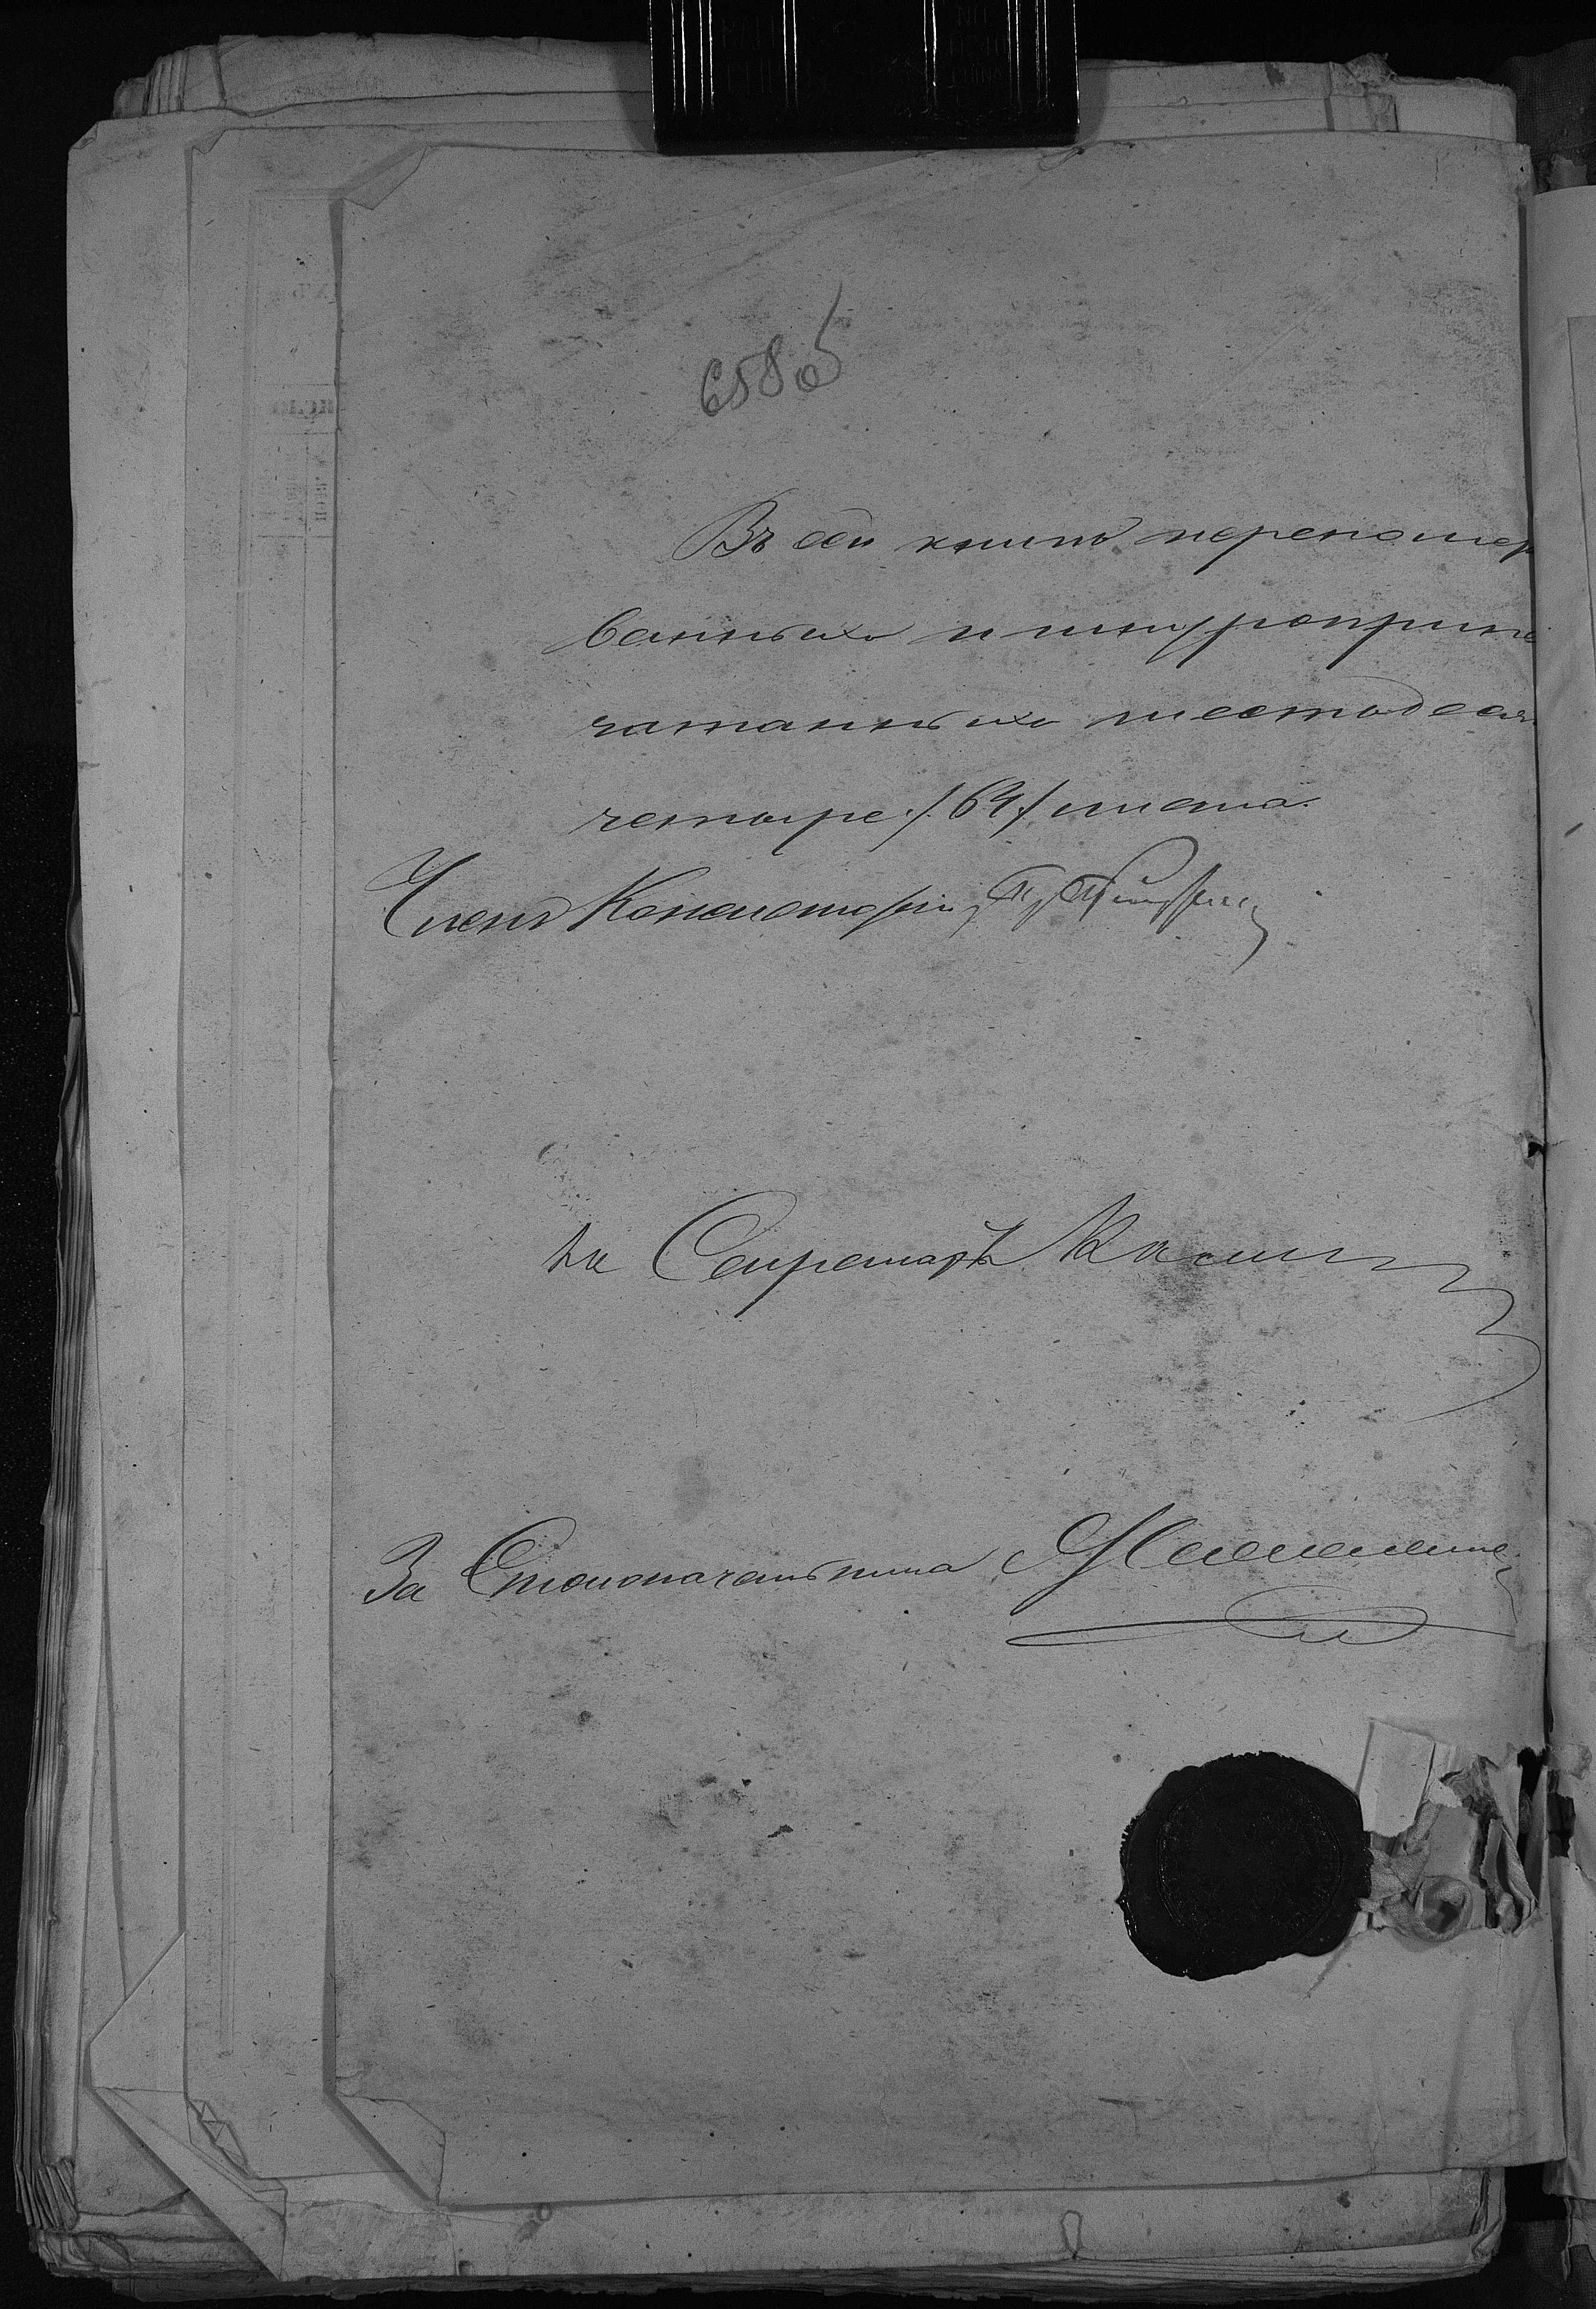 658 об
Въ сей книгѣ перенумеро
ванныхъ и шнуроприпе
чатанныхъ шестьдесятъ
четыре /64/ листа.
Членъ Консисторіи
Секретарь
За Столоначальника